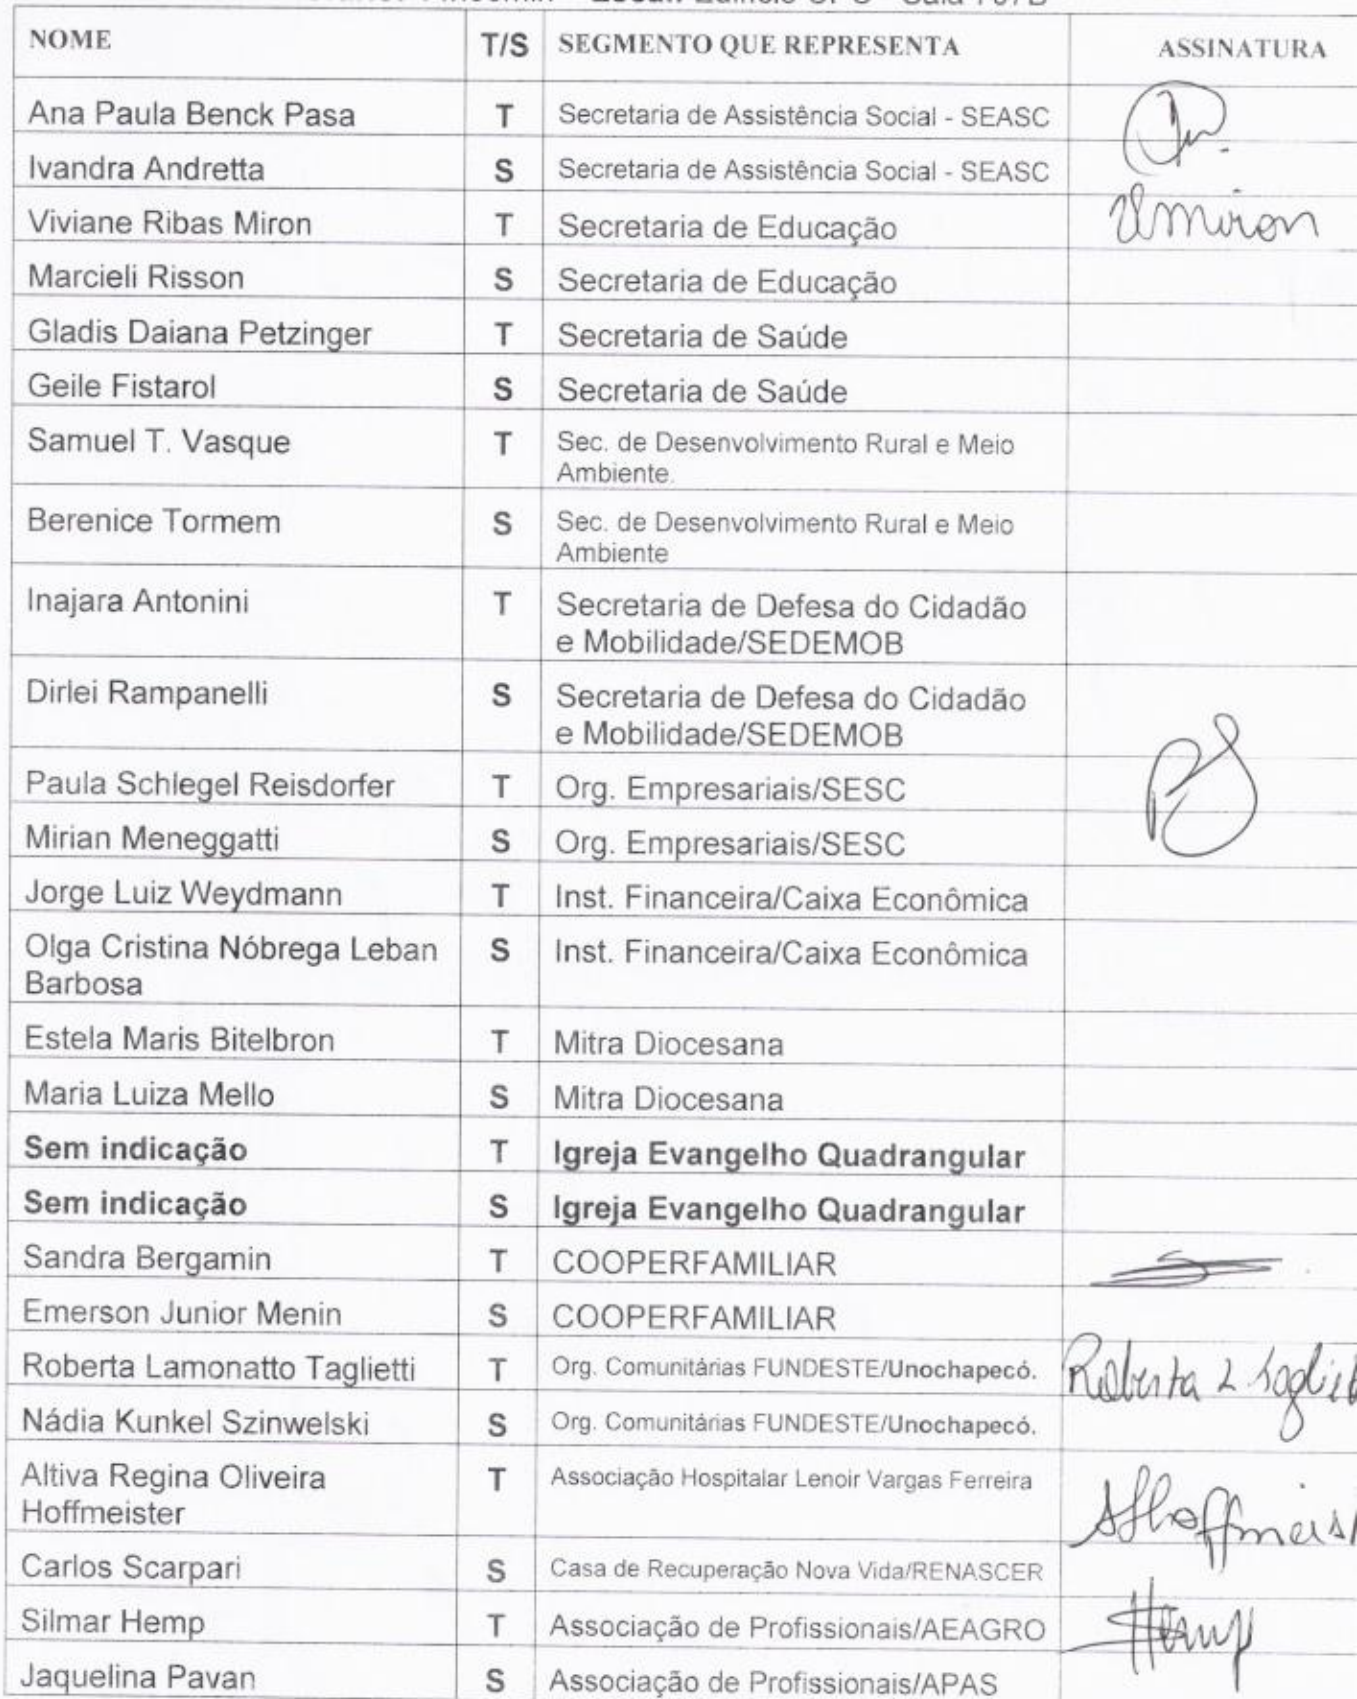 Local: Edifício CPC - Sala 707B
NOME T/S SEGMENTO QUE REPRESENTA ASSINATURA
Ana Paula Benck Pasa T Secretaria de Assistência Social - SEASC
Ivandra Andretta S Secretaria de Assistência Social - SEASC
Viviane Ribas Miron T Secretaria de Educação VMiron
Marcieli Risson S Secretaria de Educação
Gladis Daiana Petzinger T Secretaria de Saúde
Geile Fistarol S Secretaria de Saúde
Samuel T. Vasque T Sec. de Desenvolvimento Rural e Meio
Ambiente.
Berenice Tormem S Sec. de Desenvolvimento Rural e Meio
Ambiente
Inajara Antonini T Secretaria de Defesa do Cidadão
e Mobilidade/SEDEMOB
Dirlei Rampanelli S Secretaria de Defesa do Cidadão
e Mobilidade/SEDEMOB
Paula Schlegel Reisdorfer T Org. Empresariais/SESC PS
Mirian Meneggatti S Org. Empresariais/SESC
Jorge Luiz Weydmann T Inst. Financeira/Caixa Econômica
Olga Cristina Nóbrega Leban S Inst. Financeira/Caixa Econômica
Barbosa
Estela Maris Bitelbron T Mitra Diocesana
Maria Luiza Mello S Mitra Diocesana
Sem indicação T Igreja Evangelho Quadrangular
Sem indicação S Igreja Evangelho Quadrangular
Sandra Bergamin T COOPERFAMILIAR
Emerson Junior Menin S COOPERFAMILIAR
Roberta Lamonatto Taglietti T Org. Comunitárias FUNDESTE/Unochapecó. Roberta L Tagliet
Nádia Kunkel Szinwelski S Org. Comunitárias FUNDESTE/Unochapecó.
Altiva Regina Oliveira T Associação Hospitalar Lenoir Vargas Ferreira
Hoffmeister AHoffmeis
Carlos Scarpari S Casa de Recuperação Nova Vida/RENASCER
Silmar Hemp T Associação de Profissionais/AEAGRO Hemp
Jaquelina Pavan S Associação de Profissionais/APAS